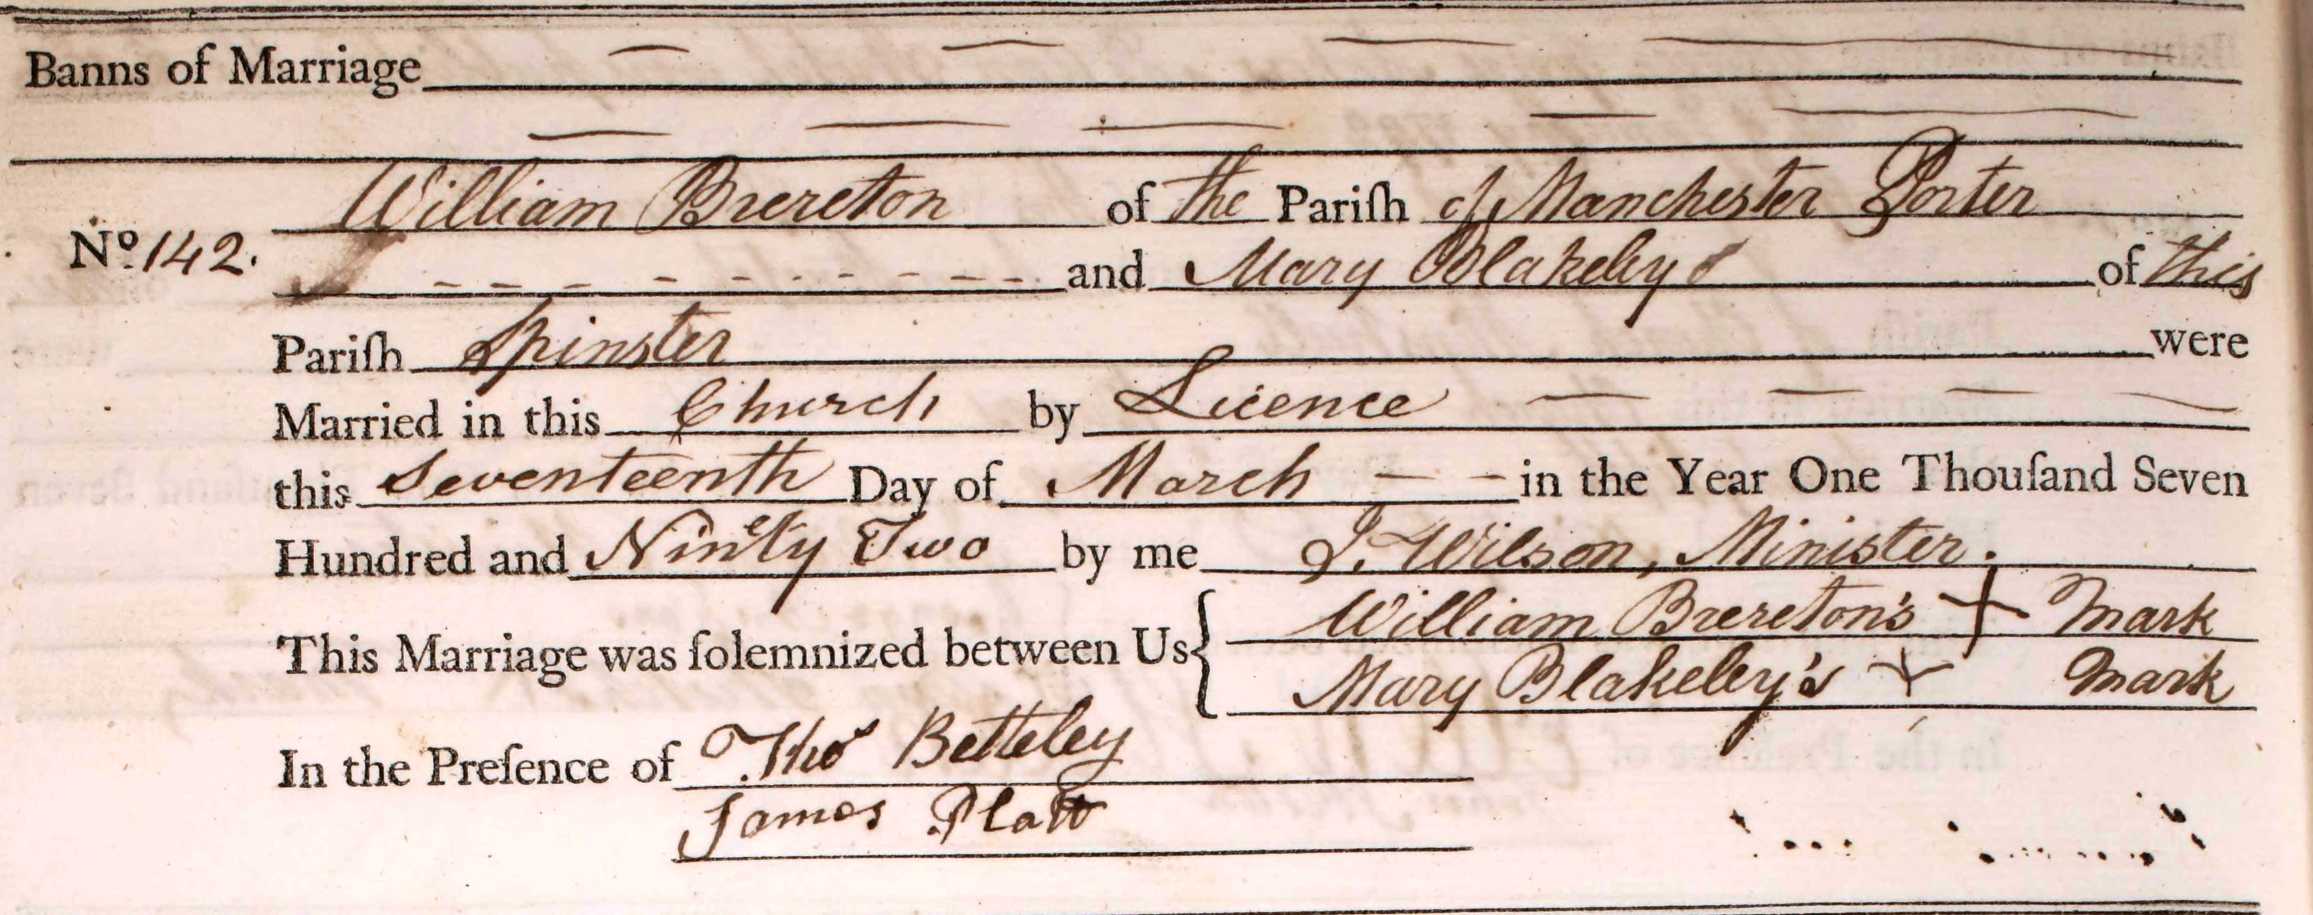 Banns of Marriage
William Brereton of the Pariſh of Manchester Porter
No. 142. and Mary Blakeley of this
Pariſh Spinster were
Married in this Church by Licence
this Seventeenth Day of March in the Year One Thouſand Seven
Hundred and Ninety Two by me J. Wilson, Minister.
This Marriage was ſolemnized between Us { William Brereton's + Mark
Mary Blakeley's + Mark
In the Preſence of Thos Betteley
James Platt